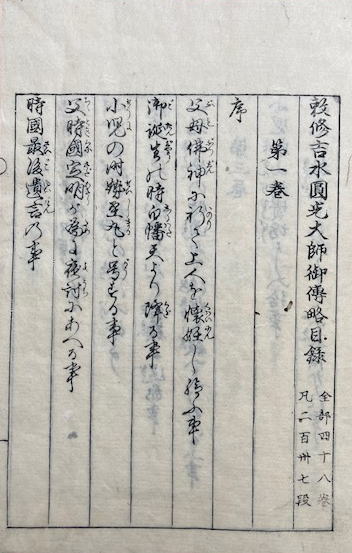 敕修吉水圓光大師御傳略目錄
全部四十八巻
凡二百卅七段
第一巻
序
父母佛神に祈て上人を懐妊し給ふ事
御誕生の時白幡天より降る事
小児の時勢至丸と号する事
父時國定明が為に夜討にあへる事
時國最後遺言の事